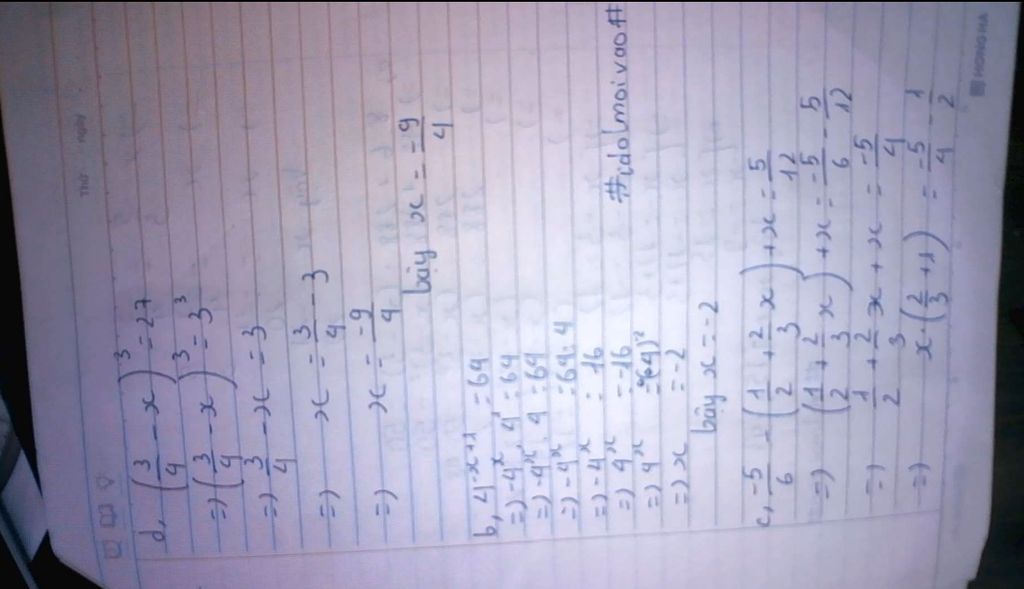 Thứ ngày
d, (3/4 - x)³ = 27
=) (3/4 - x)³ = 3³
=) 3/4 - x = 3
=) x = 3/4 - 3
=) x = -9/4
bậy x = -9/4
b, 4^-x+1 = 64
=) -4^x . 4¹ = 64
=) -4^x . 4 = 64
=) -4^x = 64 : 4
=) -4^x = 16
=) 4^x = -16
=) 4^x = (4)^-2
=) x = -2
bậy x = -2
#idolmoivao#
c, -5/6 - (1/2 + 2/3 x) + x = 5/12
=) (1/2 + 2/3 x) + x = -5/6 - 5/12
=) 1/2 + 2/3 x + x = -5/4
=) x . (2/3 + 1) = -5/4 - 1/2
HONG HA